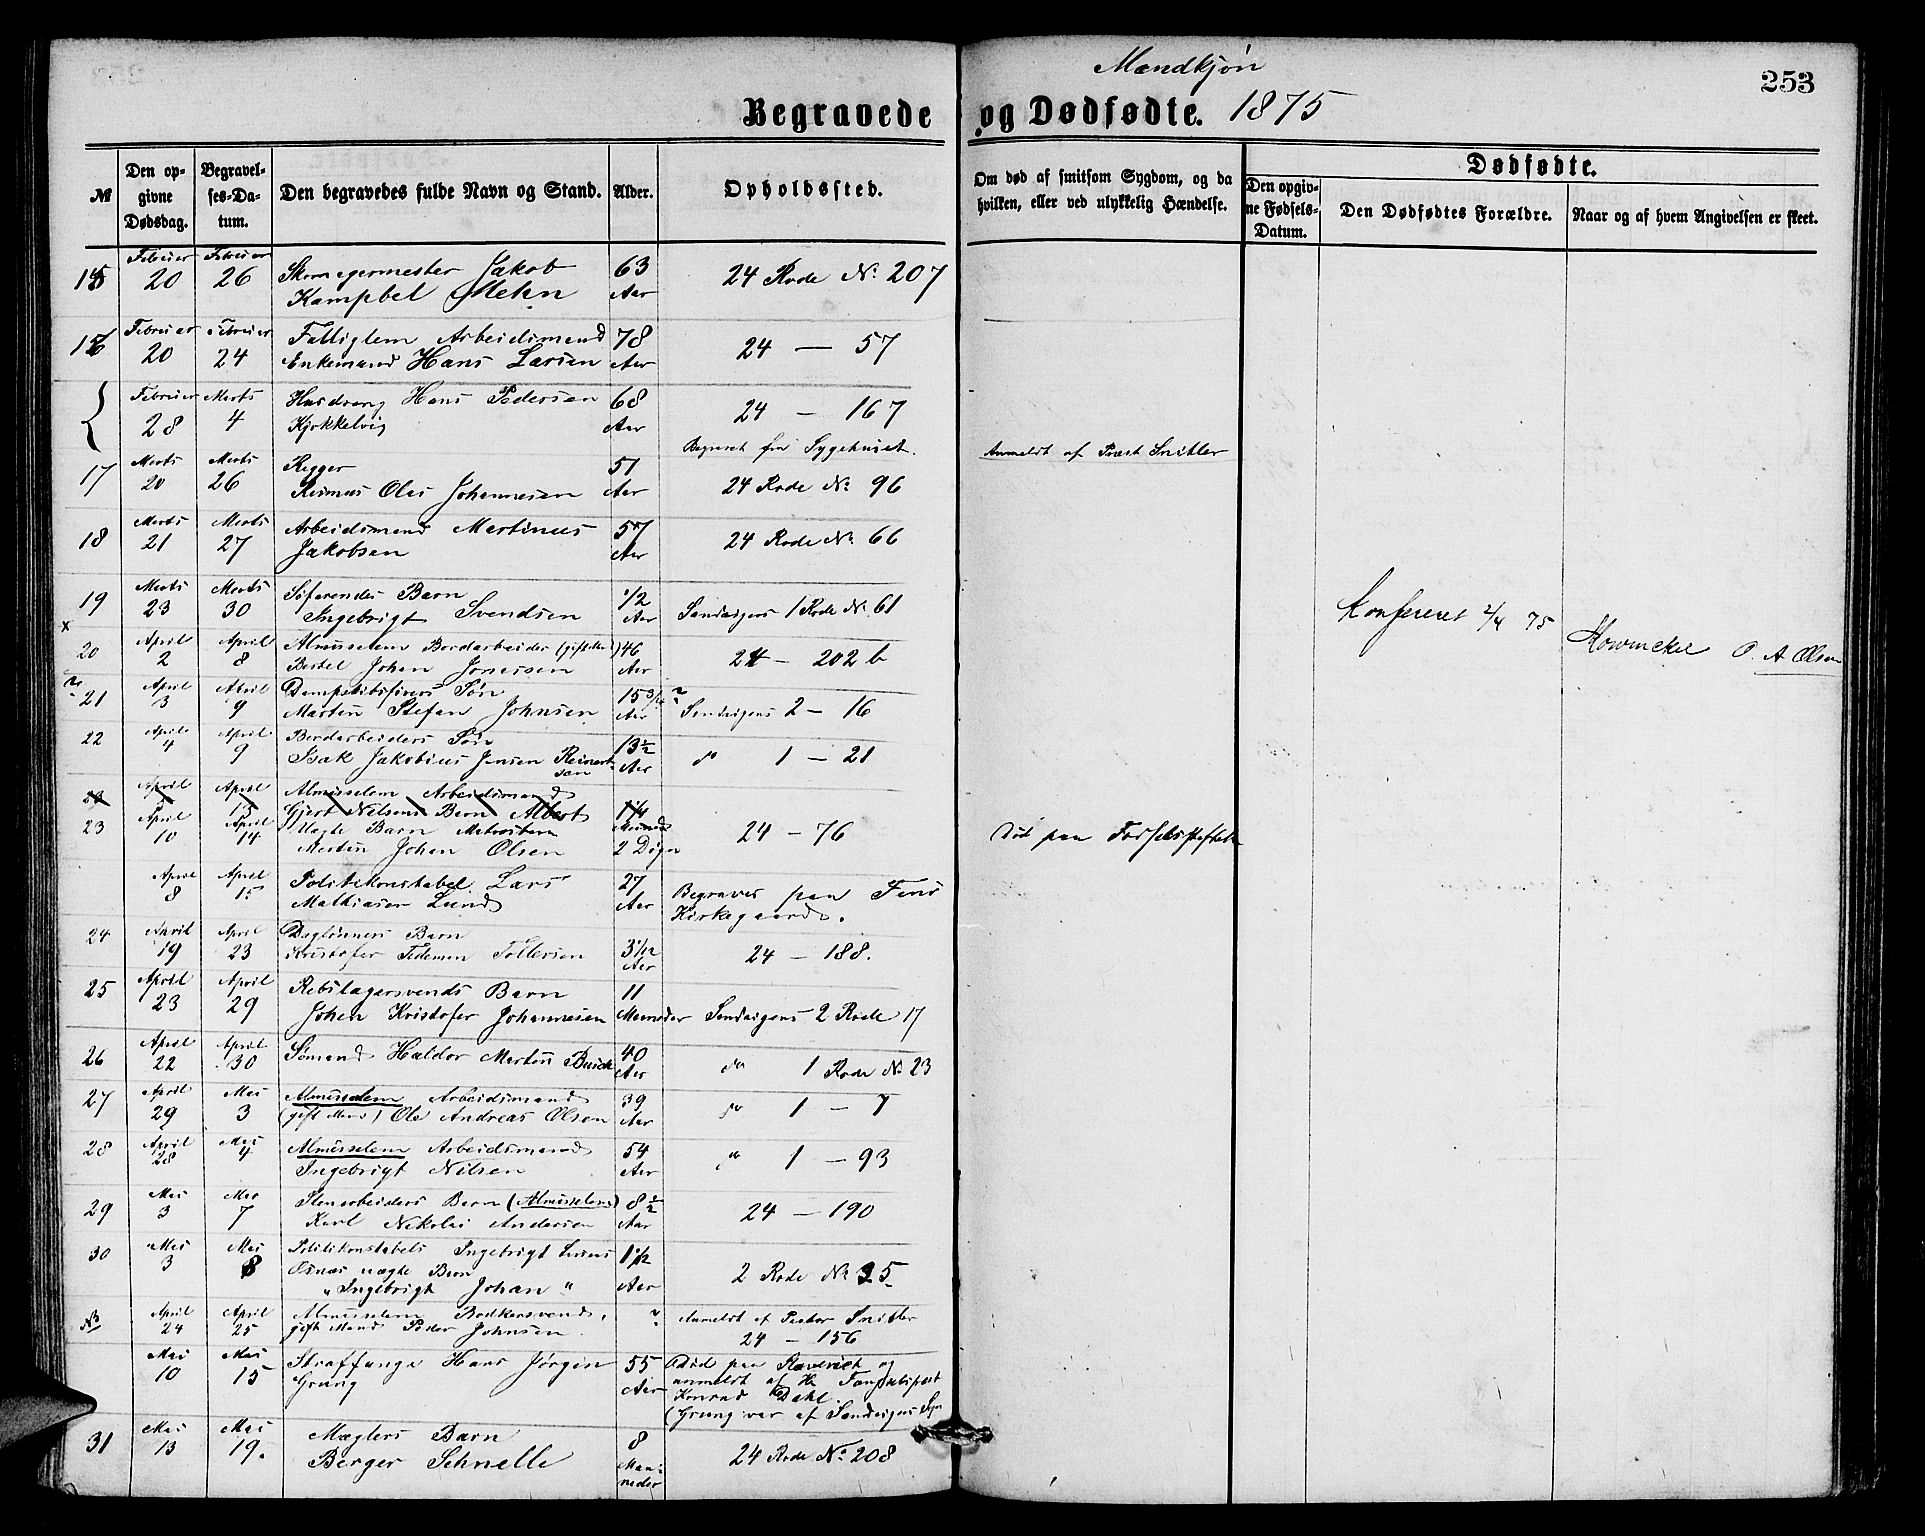 Mandkjøn
253
Begravede og Dødfødte. 1875
№
Den opgivne Dødsdag.
Begravelses-Datum.
Den begravedes fulde Navn og Stand.
Alder.
Opholdssted.
Om død af smitsom Sygdom, og da hvilken, eller ved ulykkelig Hændelse.
Dødfødte.
Den opgivne Fødsels-Datum.
Den Dødfødtes Forældre.
Naar og af hvem Angivelsen er skeet.
15 Februar 20 Februar 26 Skomagermester Jakob 63 Aar 24 Rode № 207
Kampbel Mehn
16 Februar 20 Februar 24 Fattiglem Arbeidsmand 78 Aar 24 — 57
Enkemand Hans Larsen
Februar 28 Marts 4 Husdreng Hans Pedersen 68 Aar 24 — 167
Kjøkkelvig
Begravet fra Sygehuset. Anmeldt af Præst Snitler
17 Marts 20 Marts 26 Regger 51 Aar 24 Rode № 96
Rasmus Olai Johannesen
18 Marts 21 Marts 27 Arbeidsmand Martinus 57 Aar 24 Rode № 66
Jakobsen
19 Marts 23 Marts 30 Søfarendes Barn 1/2 Aar Sandvigens 1 Rode № 61
Ingebrigt Svendsen
Konfereret 2/4 75
x
20 April 2 April 8 Almisselem Bordarbeider (gift) 46 Aar 24 — 202 b
Bertel Johan Jonassen
A Olsen
21 April 3 April 9 Dampskibsfirers Søn 15 3/4 Aar Sandvigens 2 — 16
Martin Stefan Johnsen
22 April 4 April 9 Bordarbeiders Søn 13 1/2 Aar do 1 — 21
Isak Jakobius Jensen Reinertsen
April April 13 Almisselem Arbeidsmand
Gjert Nilsens Barn Albert 1 1/4
23 April 10 April 14 Uægte Barn Matrosbarn Maaneder 24 — 76
Martin Johan Olsen 2 Døgn
Død paa Fødselsstiftelsen
April 8 April 15 Politikonstabel Lars 27 Aar Begraves paa Fens
Mathiasen Lund Kirkegaard.
24 April 19 April 23 Dagløners Barn 3 1/12 Aar 24 — 188.
Kristofer Tideman Tollevsen
25 April 23 April 29 Rebslagersvends Barn 11
Johan Kristofer Johannesen Maaneder Sandvigens 2 Rode 17
26 April 22 April 30 Sømand Haldor Martin Busch 40 Aar do 1 Rode № 23
27 April 29 Mai 3 Almisselem Arbeidsmand 39 Aar do 1 — 7
(gift Mand) Ole Andreas Olsen
28 April 28 Mai 4 Almisselem Arbeidsmand 54 Aar do 1 — 93
Ingebrigt Nilsen
29 Mai 3 Mai 7 Stenarbeiders Barn (Almisselem) 8 1/2 Aar 24 — 190
Karl Nikolai Andersen
30 Mai 3 Mai 8 Politikonstabels Ingebrigt 1 1/12
uægte Barn Aar 2 Rode № 35
" Ingebrigt Johan "
April 24 April 25 Almisselem Bødkersvend, Anmeldt af Pastor Snitler
gift Mand Peder Johnsen 24 — 156
Mai 10 Mai 15 Straffange Hans Jørgen 55 Aar Død paa og
Grung anmeldt af Hr Fængselspræst
Konrad Dahl
(Grung var af Sandvigens Sogn
31 Mai 13 Mai 19. Mæglers Barn 8 Maaneder 24 Rode № 208
Berger Schnelle